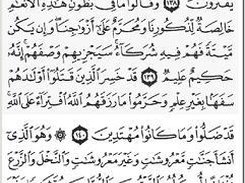 يَفْتَرُونَ ۝١٣٨ وَقَالُوا۟ مَا فِى بُطُونِ هَـٰذِهِ ٱلْأَنْعَـٰمِ
خَالِصَةٌ لِّذُكُورِنَا وَمُحَرَّمٌ عَلَىٰٓ أَزْوَٰجِنَا وَإِن يَكُن
مَّيْتَةً فَهُمْ فِيهِ شُرَكَآءُ سَيَجْزِيهِمْ وَصْفَهُمْ إِنَّهُۥ
حَكِيمٌ عَلِيمٌ ۝١٣٩ قَدْ خَسِرَ ٱلَّذِينَ قَتَلُوٓا۟ أَوْلَـٰدَهُمْ
سَفَهًۢا بِغَيْرِ عِلْمٍ وَحَرَّمُوا۟ مَا رَزَقَهُمُ ٱللَّهُ ٱفْتِرَآءً عَلَى ٱللَّهِ
قَدْ ضَلُّوا۟ وَمَا كَانُوا۟ مُهْتَدِينَ ۝١٤٠ ۞ وَهُوَ ٱلَّذِىٓ
أَنشَأَ جَنَّـٰتٍ مَّعْرُوشَـٰتٍ وَغَيْرَ مَعْرُوشَـٰتٍ وَٱلنَّخْلَ وَٱلزَّرْعَ